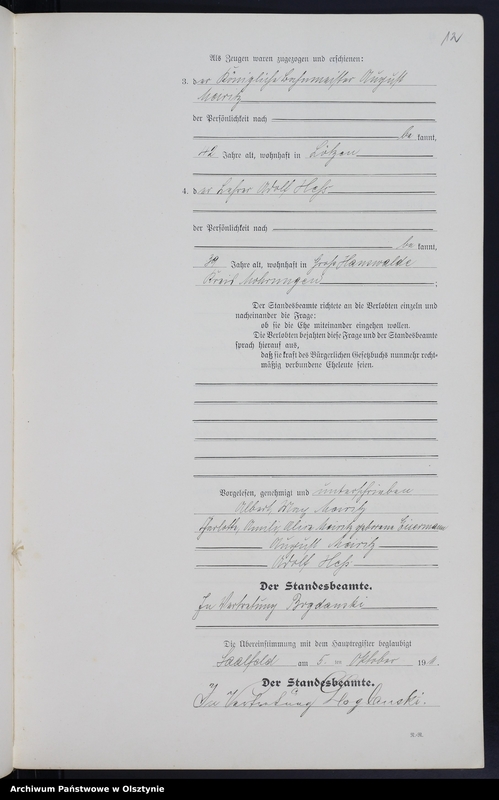 12
Als Zeugen waren zugezogen und erschienen:
3. der Königliche Bahnmeister August
Mairitz
der Persönlichkeit nach
be kannt,
42 Jahre alt, wohnhaft in Lötzen
4. der Lehrer Adolf Hess
der Persönlichkeit nach
be kannt,
Jahre alt, wohnhaft in Groß Hanswalde
Kreis Mohrungen ;
Der Standesbeamte richtete an die Verlobten einzeln und
nacheinander die Frage:
ob sie die Ehe miteinander eingehen wollen.
Die Verlobten bejahten diese Frage und der Standesbeamte
sprach hierauf aus,
daß sie kraft des Bürgerlichen Gesetzbuchs nunmehr recht-
mäßig verbundene Eheleute seien.
Vorgelesen, genehmigt und unterschrieben
Albert Max Mairitz
Mairitz geborene
August Mairitz
Adolf Hess
Der Standesbeamte.
In Vertretung Bogdanski
Die Übereinstimmung mit dem Hauptregister beglaubigt
Saalfeld am 5. ten Oktober 191
Der Standesbeamte.
In Vertretung Bogdanski.
R.-R.
Archiwum Państwowe w Olsztynie